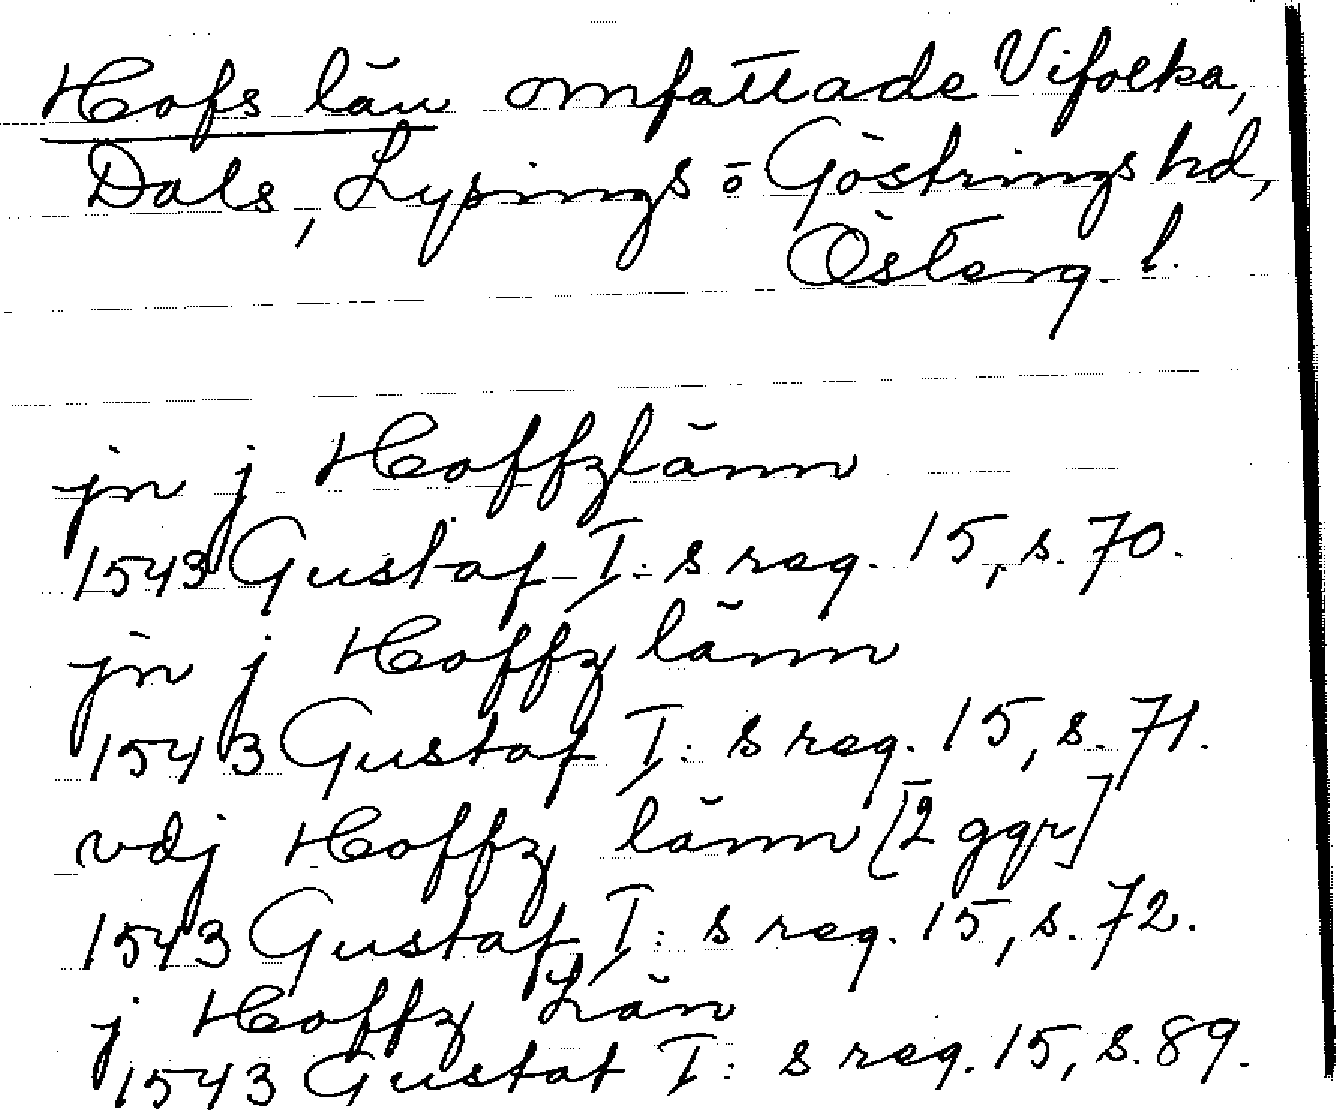 Hofs län omfattade Vifolka,
Dals, Lysings o Göstrings hd,
Österg. l.
jn j Hoffzlänn
1543 Gustaf I:s reg. 15, s. 70.
jn j Hoffz länn
1543 Gustaf I:s reg. 15, s. 71.
vdj Hoffz länn [2 ggr]
1543 Gustaf I:s reg. 15, s. 72.
j Hoffz Län
1543 Gustaf I:s reg. 15, s. 89.